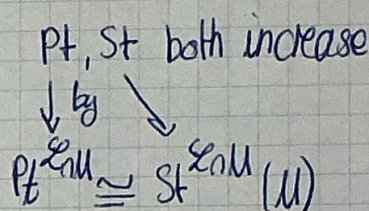 Pt, St both increase
↓ by ↘
Pt^ℒnM ≅ St^ℒnM (M)